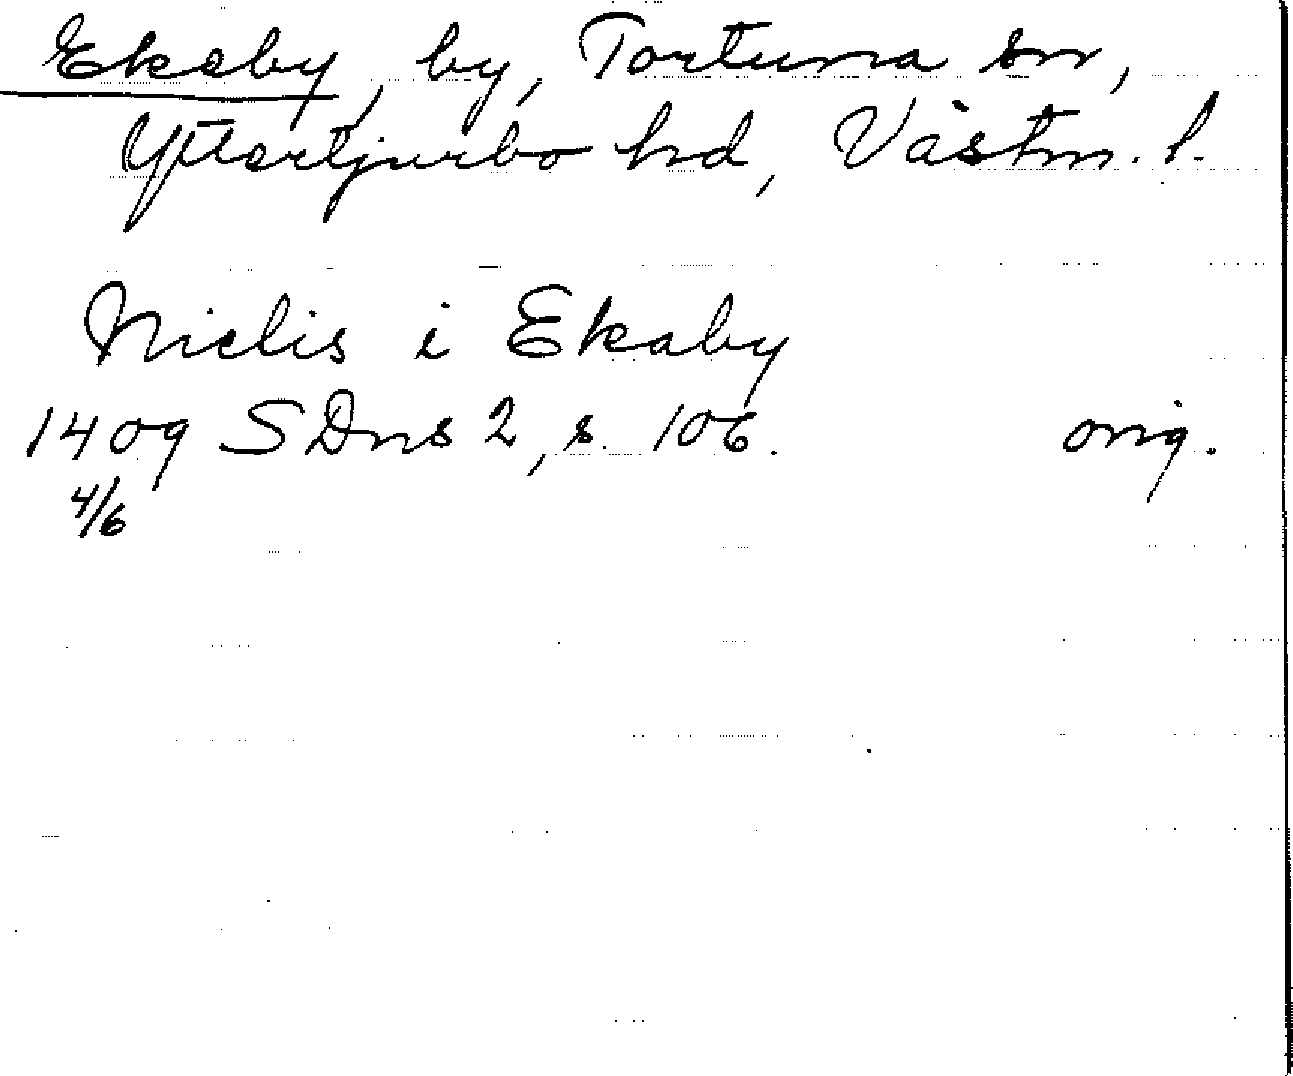 Ekeby, by, Tortuna sn,
Yttertjurbo hd, Västm. l.
Niclis i Ekaby
1409 SDns 2, s. 106. orig.
4/6